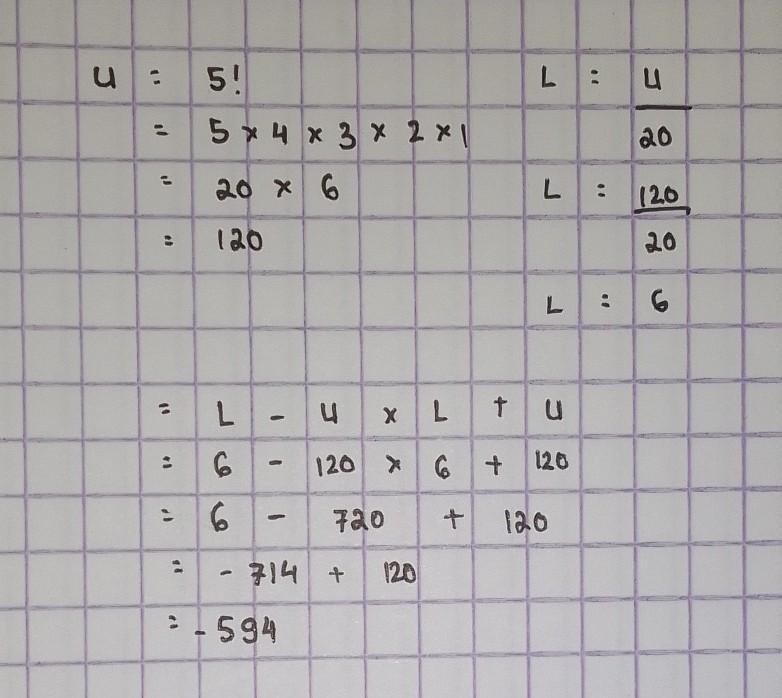 U = 5!
= 5 × 4 × 3 × 2 × 1
= 20 × 6
= 120
L = U
20
L = 120
20
L = 6
= L - U × L + U
= 6 - 120 × 6 + 120
= 6 - 720 + 120
= - 714 + 120
= - 594